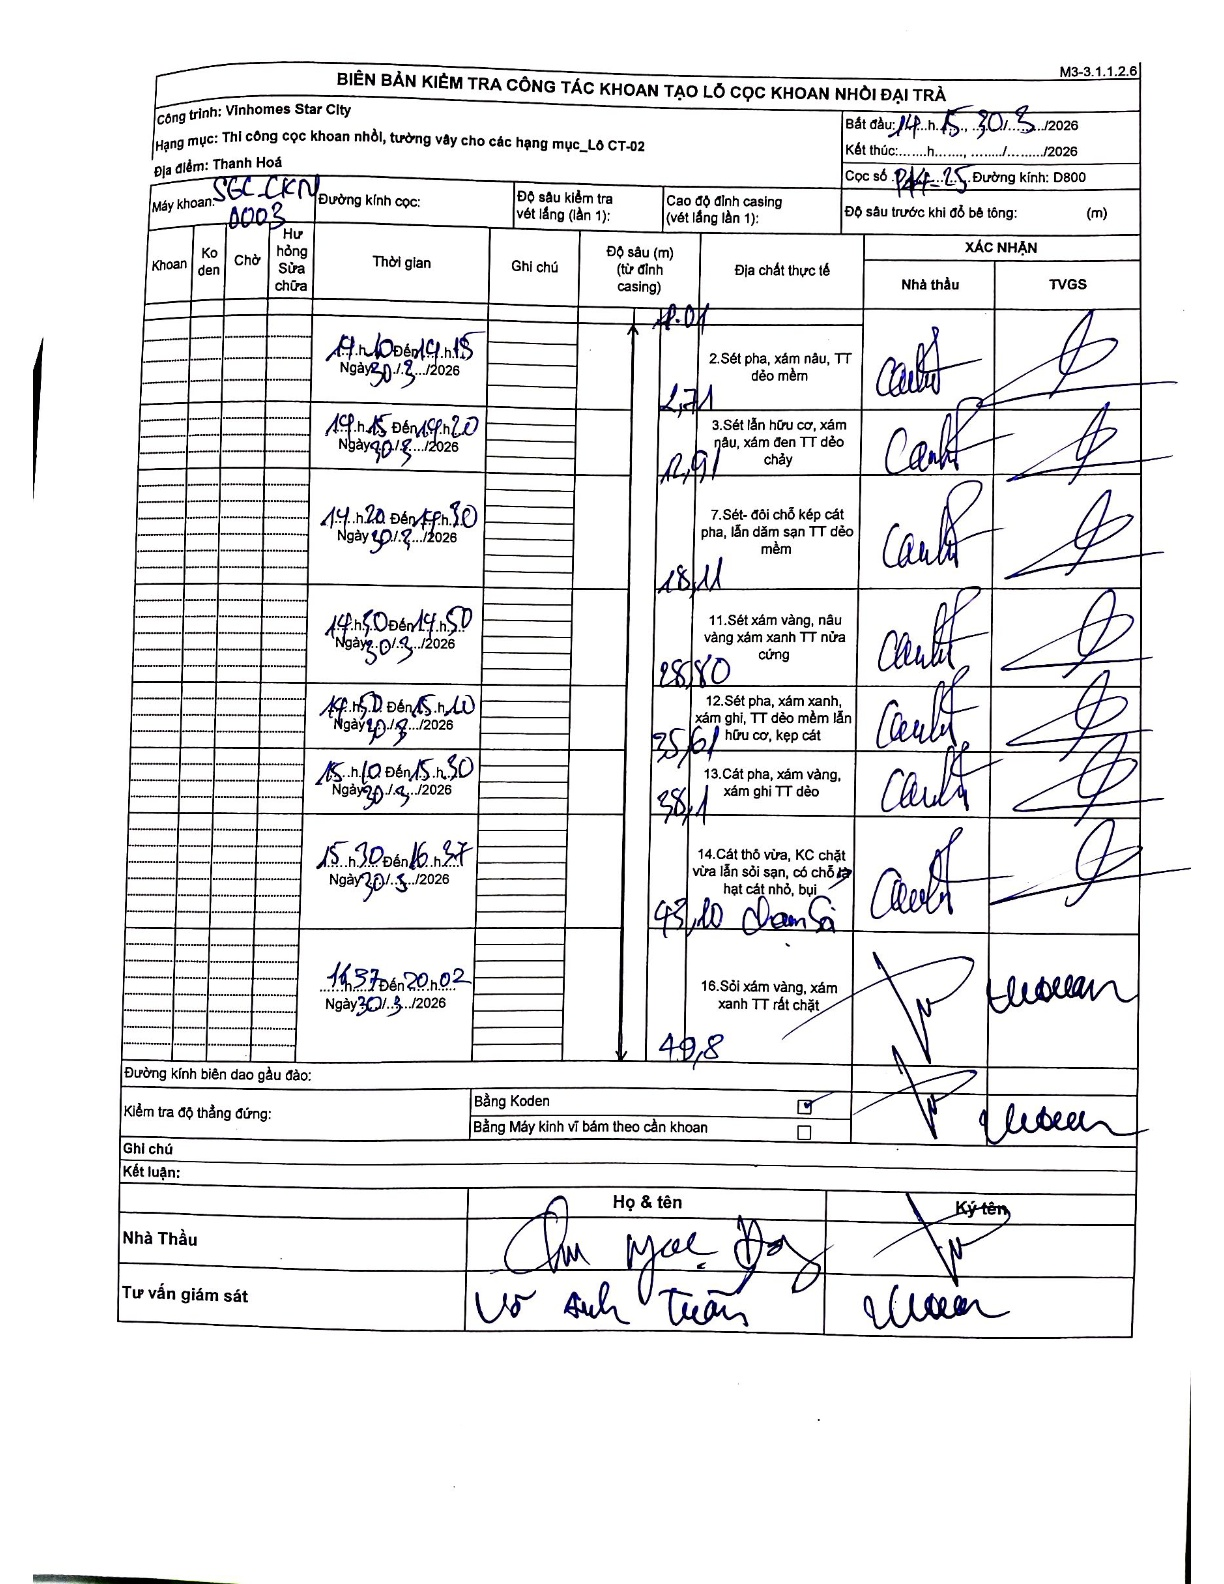 M3-3.1.1.2.6
BIÊN BẢN KIỂM TRA CÔNG TÁC KHOAN TẠO LỖ CỌC KHOAN NHỒI ĐẠI TRÀ
Công trình: Vinhomes Star City
Hạng mục: Thi công cọc khoan nhồi, tường vây cho các hạng mục_Lô CT-02
Địa điểm: Thanh Hoá
Bắt đầu: 14 h 15, 30/3/2026
Kết thúc:.......h......., ......../........./2026
Cọc số P14-25 Đường kính: D800
Máy khoan: SGC-CKN
0003
Đường kính cọc:
Độ sâu kiểm tra
vét lắng (lần 1):
Cao độ đỉnh casing
(vét lắng lần 1):
Độ sâu trước khi đổ bê tông: (m)
Khoan
Ko
den
Chờ
Hư
hỏng
Sửa
chữa
Thời gian
Ghi chú
Độ sâu (m)
(từ đỉnh
casing)
Địa chất thực tế
XÁC NHẬN
Nhà thầu
TVGS
14.h.10 Đến 14.h.15
Ngày 30/.3.../2026
2.Sét pha, xám nâu, TT
dẻo mềm
2,71
14.h.15 Đến 14.h 20
Ngày 30/.3.../2026
3.Sét lẫn hữu cơ, xám
nâu, xám đen TT dẻo
chảy
12,91
14.h.20 Đến 14.h.30
Ngày 30/.3.../2026
7.Sét- đôi chỗ kép cát
pha, lẫn dăm sạn TT dẻo
mềm
18,11
14.h.30 Đến 14.h.50
Ngày 30/.3.../2026
11.Sét xám vàng, nâu
vàng xám xanh TT nửa
cứng
28,80
14.h.50 Đến 15.h.10
Ngày 30/.3.../2026
12.Sét pha, xám xanh,
xám ghi, TT dẻo mềm lẫn
hữu cơ, kẹp cát
35,61
15.h.10 Đến 15.h.30
Ngày 30/.3.../2026
13.Cát pha, xám vàng,
xám ghi TT dẻo
38,1
15.h.30 Đến 16.h.37
Ngày 30/.3.../2026
14.Cát thô vừa, KC chặt
vừa lẫn sỏi sạn, có chỗ là
hạt cát nhỏ, bụi
43,10 chạm Sỏi
16 37 Đến 20.h.02
Ngày 30/.3.../2026
16.Sỏi xám vàng, xám
xanh TT rất chặt
49,8
Đường kính biên dao gầu đào:
Kiểm tra độ thẳng đứng:
Bằng Koden
Bằng Máy kinh vĩ bám theo cần khoan
Ghi chú
Kết luận:
Họ & tên
Ký tên
Nhà Thầu
Tư vấn giám sát
Võ Anh Tuấn